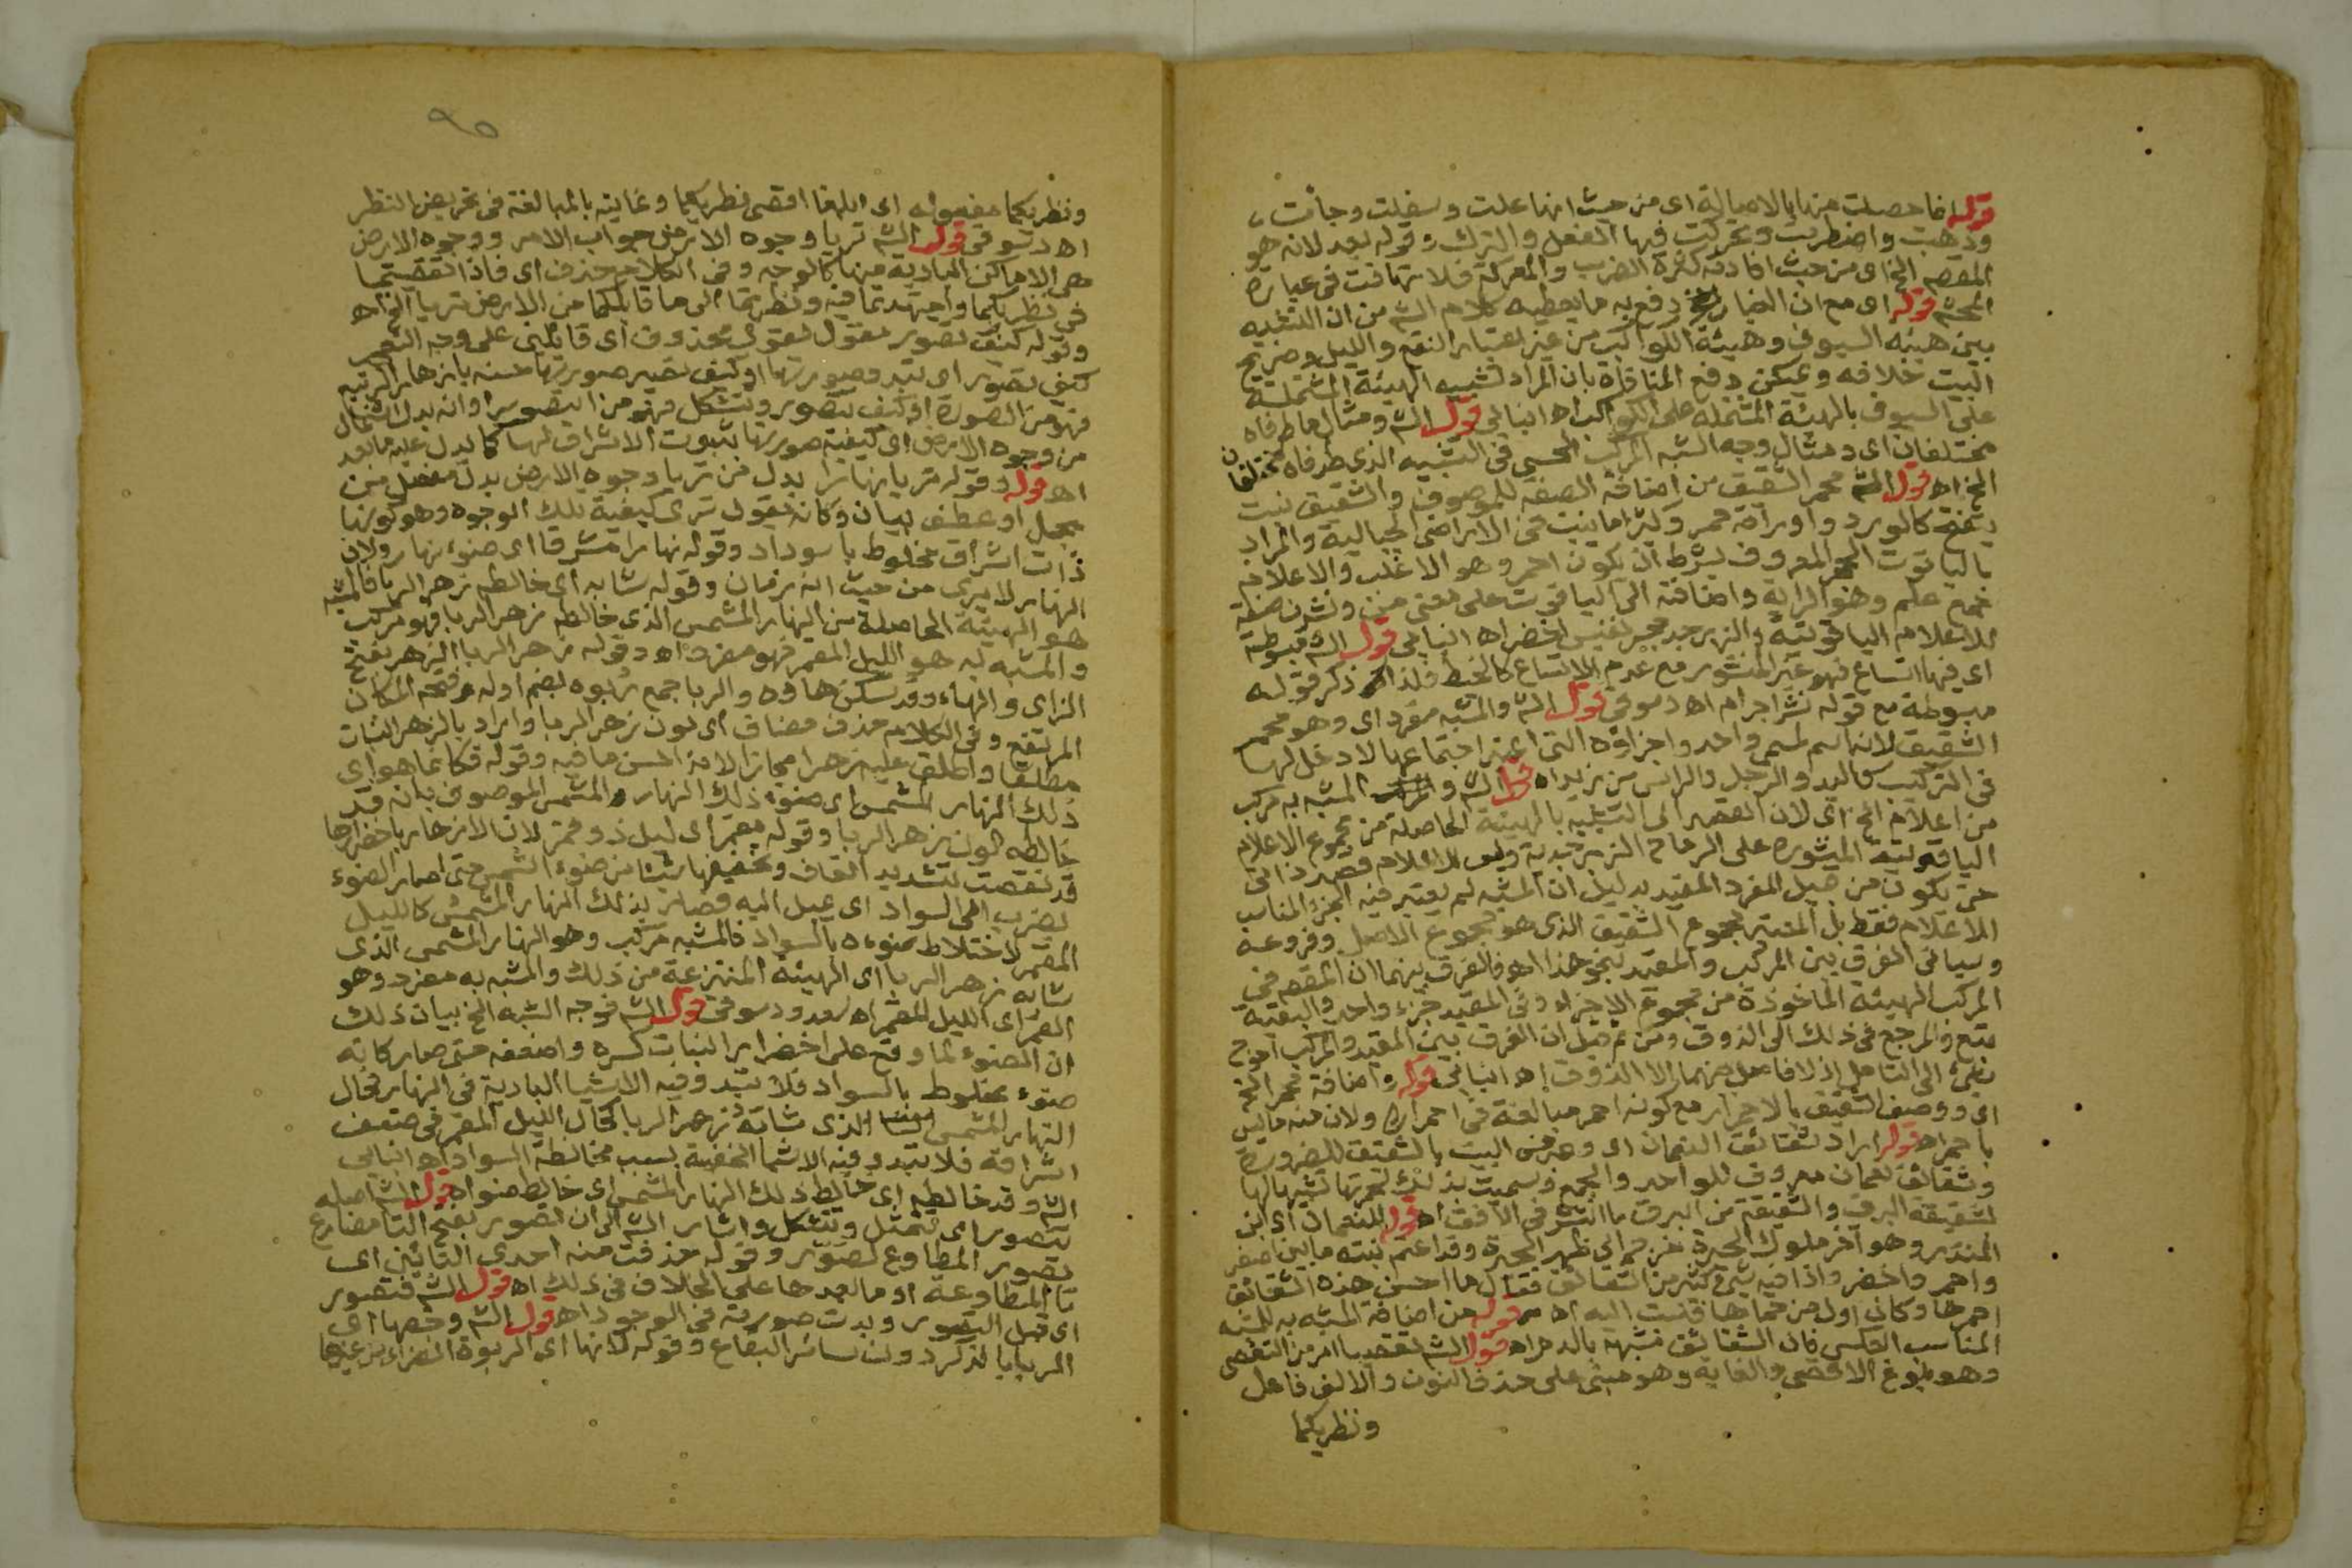 قوله فما حصلت منها بالاصالة اى من حيث انها علت وسفلت وجاءت
وذهبت واضطربت وتحركت فيها الفعل والترك وقوله بعد لانه هو
المقصم الخ اى من حيث افادته كثرة الضرب والمعركة فلا تهافت فى عبارة
المحشى قوله اى مع ان الغبار الخ دفع به ما يعطيه كلام الشم من ان التشبيه
بين هيئة السيوف وهيئة الكواكب من غير اعتبار النقع والليل وصريح
البيت خلافه ويمكن دفع المنافاة بان المراد تشبيه الهيئة المشتملة
على السيوف بالهيئة المشتملة على الكواكب اه انبابى قول الشم ومثال ما طرفاه
مختلفان اى ومثال وجه الشبه المركب الحسى فى التشبيه الذى طرفاه مختلفان
الخ اه قول الشم محمر الشقيق من اضافة الصفة للموصوف والشقيق نبت
يتفتح كالورد واوراقه حمر وكثيرا ما ينبت فى الاراضى الجبالية والمراد
بالياقوت الحجر المعروف بشرط ان يكون احمر وهو الاغلب والاعلام
جمع علم وهو الراية واضافته الى الياقوت على معنى من ونشرن صفة
للاعلام الياقوتية والزبرجد حجر نفيس اخضر اه انبابى قول الشم مبسوطة
اى فيها اتساع فهو غير المنشور مع عدم الاتساع كالخط فلذا ذكر قوله
مبسوطة مع قوله نشر اجرام اه دسوقى قول الشم والمشبه مفرد اى وهو محمر
الشقيق لانه اسم لمسمى واحد واجزاؤه التى اعتبر اجتماعها لا دخل لها
فى التركيب كاليد والرجل والراس من زيد اه قول الشم والمشبه به مركب
من اعلام الخ اى لان القصد الى التشبيه بالهيئة الحاصلة من مجموع الاعلام
الياقوتية المنشورة على الرماح الزبرجدية وليس للاعلام قصد ذاتى
حتى يكون من قبيل المفرد المقيد بدليل ان المشبه لم يعتبر فيه الجزء المناسب
للاعلام فقط بل المعتبر مجموع الشقيق الذى هو مجموع الاصل وفروعه
وسياتى الفرق بين المركب والمقيد بنحو هذا اه فالفرق بينهما ان المقصم فى
المركب الهيئة الماخوذة من مجموع الاجزاء وفى المقيد جزء واحد والبقية
تبع والمرجع فى ذلك الى الذوق ومن ثم قيل ان الفرق بين المقيد والمركب احوج
شئ الى التامل اذ لا فاصل بينهما الا الذوق اه انبابى قوله واضافة محمر الخ
اى ووصف الشقيق بالاحمرار مع كونه احمر مبالغة فى احمراره ولان منه ما ليس
باحمر اه قوله اراد شقائق النعمان اى وعبر فى البيت بالشقيق للضرورة
وشقائق نعمان معروف للواحد والجمع وسميت بذلك لحمرتها تشبيها لها
بشقيقة البرق والشقيقة من البرق ما انتشر فى الافق اه قوله للنعمان اى ابن
المنذر وهو آخر ملوك الحيرة خرج الى ظهر الحيرة وقد اعتم نبته ما بين اصفر
واحمر واخضر واذا فيه شئ كثير من الشقائق فقال ما احسن هذه الشقائق
احموها وكان اول من حماها فنسبت اليه اه قوله من اضافة المشبه به للمشبه
المناسب العكس فان الشقائق مشبهة بالدم اه قول الشم تقصيا امر من التقصى
وهو بلوغ الاقصى والغاية وهو مبنى على حذف النون والالف فاعل
ونظريكما
٩٥
ونظريكما مفعوله اى ابلغا اقصى نظريكما وغايته بالمبالغة فى تحريض النظر
اه دسوقى قول الشم تريا وجوه الارض جواب الامر ووجوه الارض
هى الاماكن البادية منها كالوجه وفى الكلام حذف اى فاذا تقصيتما
فى نظريكما واجتهدتما فيه ونظرتما الى ما قابلكما من الارض تريا الخ اه
وقوله كيف تصور مقول لقول محذوف اى قائلين على وجه التعجب
كيف تصور اى تبدو صورتها او كيف تصير صورتها حسنة بازهار الربيع
فهو من الصورة او كيف تتصور وتتشكل فهو من التصور او انه بدل اشتمال
من وجوه الارض اى كيفية صورتها بثبوت الاشراق لها كما يدل عليه ما بعد
اه قوله وقوله تريا نهارا بدل من تريا وجوه الارض بدل مفصل من
مجمل او عطف بيان وكانه يقول ترى كيفية تلك الوجوه وهو كونها
ذات اشراق مخلوط باسوداد وقوله نهارا مشرقا اى ضوء نهار ولان
النهار لا يرى من حيث انه زمان وقوله شابه اى خالطه زهر الربا فالمشبه
هو الهيئة الحاصلة من النهار المشمس الذى خالطه زهر الربا فهو مركب
والمشبه به هو الليل المقمر فهو مفرد اه وقوله زهر الربا الزهر بفتح
الزاى والهاء وقد تسكن هاؤه والربا جمع ربوه بضم اوله وفتحه المكان
المرتفع وفى الكلام حذف مضاف اى لون زهر الربا واراد بالزهر النبات
مطلقا واطلق عليه زهرا مجازا لانه احسن ما فيه وقوله فكانما هو اى
ذلك النهار المشمس اى ضوء ذلك النهار والمشمس الموصوف بانه قد
خالطه لون زهر الربا وقوله مقمر اى ليل ذو قمر لان الازهار باخضرارها
قد نقصت بتشديد القاف وتخفيفها شيئا من ضوء الشمس حتى صار الضوء
يضرب الى السواد اى يميل اليه فصار بذلك النهار المشمس كالليل
المقمر لاختلاط ضوءه بالسواد فالمشبه مركب وهو النهار المشمس الذى
شابه زهر الربا اى الهيئة المنتزعة من ذلك والمشبه به مفرد وهو
القمر اى الليل المقمر اه سعد ودسوقى قول الشم فوجه الشبه الخ بيان ذلك
ان الضوء لما وقع على اخضرار النبات كسره واضعفه حتى صار كانه
ضوء مخلوط بالسواد فلا تبدو فيه الاشيا البادية فى النهار فحال
النهار المشمس الذى شابه زهر الربا كحال الليل المقمر فى ضعف
اشراقه فلا تبدو فيه الاشيا الخفية بسبب مخالطة السواد اه انبابى
الشم وقد خالطه اى خالط ذلك النهار المشمس اى خالط ضوءه اه قول الشم اصله
تتصور اى تتمثل وتتشكل واشار الشم الى ان تصور بفتح التا مضارع
تصور المطاوع لصور وقوله حذفت منه احدى التائين اى
تا المطاوعة او ما بعدها على الخلاف فى ذلك اه قول الشم فتصور
اى قبل التصور وبدت صورته فى الوجود اه قول الشم وخصها اى
الربا بالذكر دون سائر البقاع وقوله لانها اى الربوة الخضراء من غيرها